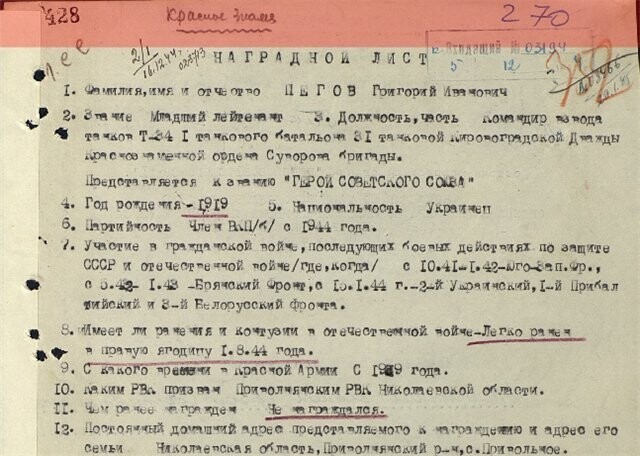 428
Красное Знамя
270
2/1
16.12.44г.
НАГРАДНОЙ ЛИСТ
Входящий № 03194
5 12
1. Фамилия,имя и отчество ПЕГОВ Григорий Иванович
2. Звание Младший лейтенант 3. Должность,часть Командир взвода
танков Т-34 I танкового батальона 31 танковой Кировоградской Дважды
Краснознаменной ордена Суворова бригады.
Представляется к званию "ГЕРОЙ СОВЕТСКОГО СОЮЗА"
4. Год рождения -1919 5. Национальность Украинец
6. Партийность Член ВКП/б/ с 1944 года.
7. Участие в гражданской войне,последующих боевых действиях по защите
СССР и отечественной войне/где,когда/ с 10.41-1.42-Юго-Зап.Фр.,
с 5.42- 1.43 -Брянский Фронт,с 15.1.44 г.-2-й Украинский,1-й Прибал
тийский и 3-й Белорусский фронта.
8. Имеет ли ранения и контузии в отечественной войне-Легко ранен
в правую ягодицу 1.8.44 года.
9. С какого времени в Красной Армии С 1939 года.
10. Каким РВК призван Приволнянским РВК Николаевской области.
11. Чем ранее награжден Не награждался.
12. Постоянный домашний адрес представляемого к награждению и адрес его
семьи Николаевская область,Приволнянский р-н,с.Привольное.